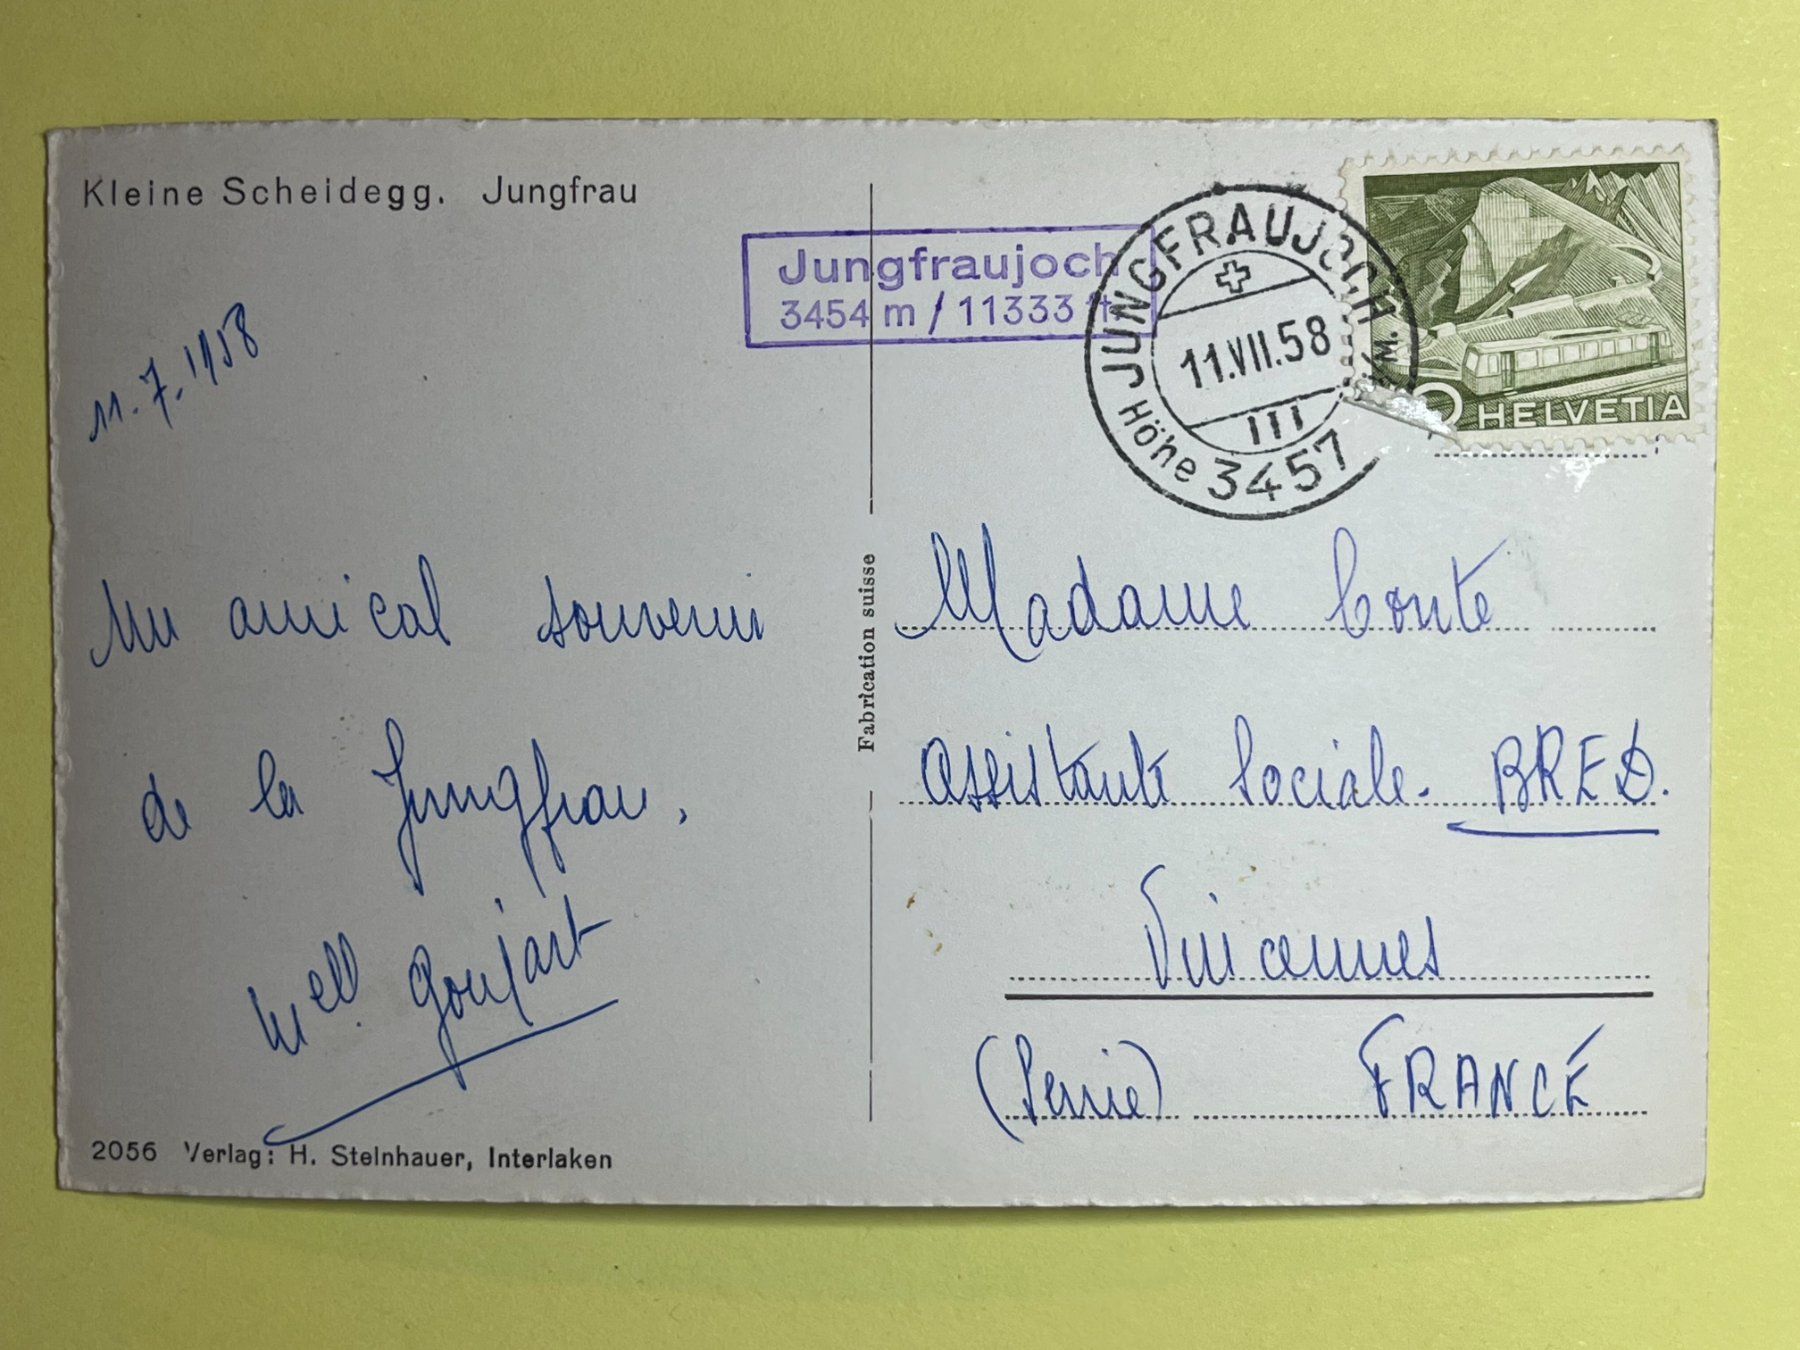 Kleine Scheidegg. Jungfrau
11.7.1958
Un amical souvenir
de la Jungfrau.
Mell. Goujart
2056 Verlag: H. Steinhauer, Interlaken
Fabrication suisse
Jungfraujoch
3454 m / 11333 ft.
JUNGFRAUJOCH
11.VII.58
III
Höhe 3457 ü/M.
HELVETIA
Madame Conte
Assistante Sociale. BRED.
Vincennes
(Seine) FRANCE